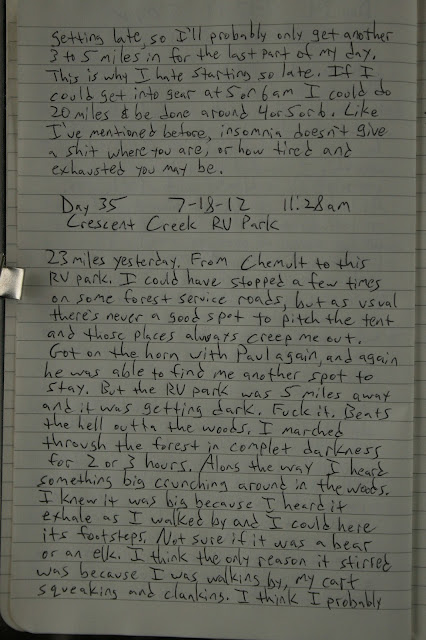 getting late, so I'll probably only get another
3 to 5 miles in for the last part of my day.
This is why I hate starting so late. If I
could get into gear at 5 or 6am I could do
20 miles & be done around 4 or 5 or 6. Like
I've mentioned before, insomnia doesn't give
a shit where you are, or how tired and
exhausted you may be.
Day 35 7-18-12 11:28am
Crescent Creek RV Park
23 miles yesterday. From Chemult to this
RV park. I could have stopped a few times
on some forest service roads, but as usual
there's never a good spot to pitch the tent
and those places always creep me out.
Got on the horn with Paul again, and again
he was able to find me another spot to
stay. But the RV park was 5 miles away
and it was getting dark. Fuck it. Beats
the hell outta the woods. I marched
through the forest in complet darkness
for 2 or 3 hours. Along the way I heard
something big crunching around in the woods.
I knew it was big because I heard it
exhale as I walked by and I could here
its footsteps. Not sure if it was a bear
or an elk. I think the only reason it stirred
was because I was walking by, my cart
squeaking and clanking. I think I probably